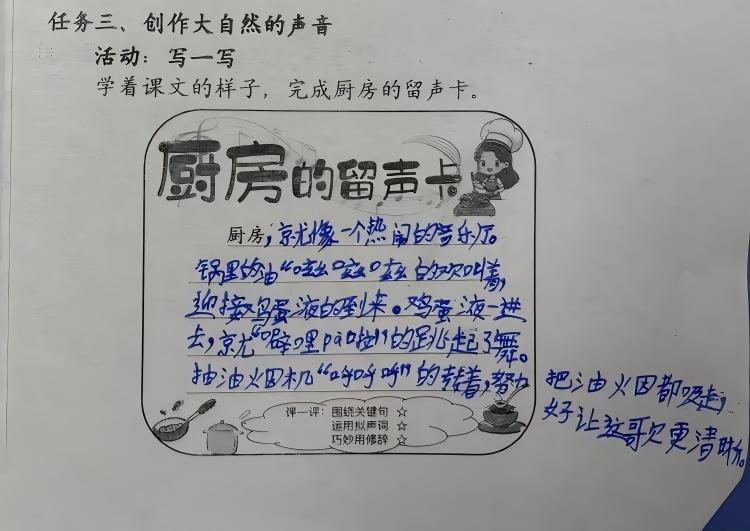 任务三、创作大自然的声音
活动：写一写
学着课文的样子，完成厨房的留声卡。
厨房的留声卡
厨房，就像一个热闹的音乐厅。
锅里的油“滋滋”的欢叫着，
迎接鸡蛋液的到来。鸡蛋液一进
去，就“噼哩pā啦”的跳起了舞。
抽油烟机“呼呼呼”的转着，努力
把油烟都吸走，
好让这歌儿更清晰。
评一评：围绕关键句 ☆
运用拟声词 ☆
巧妙用修辞 ☆